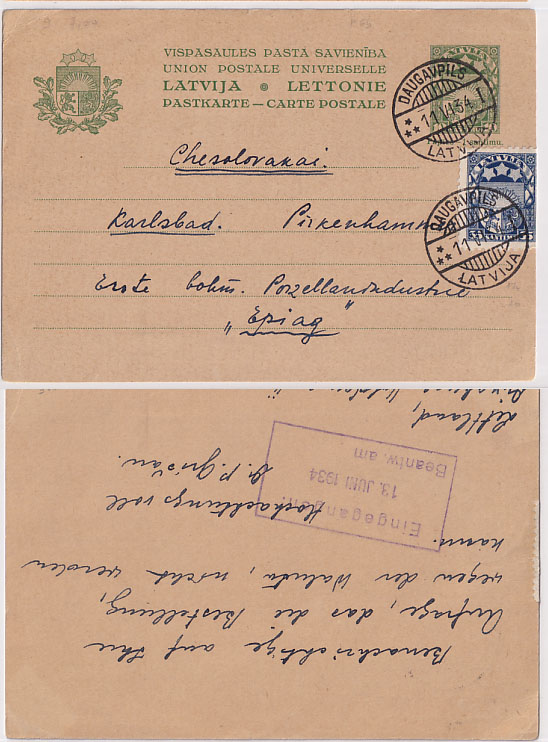 VISPASAULES PASTA SAVIENĪBA
UNION POSTALE UNIVERSELLE
LATVIJA LETTONIE
PASTKARTE — CARTE POSTALE
DAUGAVPILS
11 VI 34 I
LATVIJA
Chesolovakai.
DAUGAVPILS
11
LATVIJA
Karlsbad. Pirkenhammer
Erste böhm. Porzellanindustrie
„Epiag"
Benachrichtige auf Ihre
Anfrage, das die Bestellung,
wegen der Waluta, nicht werden
kann.
Hochachtungsvoll
Lettland,
Eingegangen:
13. JUNI 1934
Beantw. am